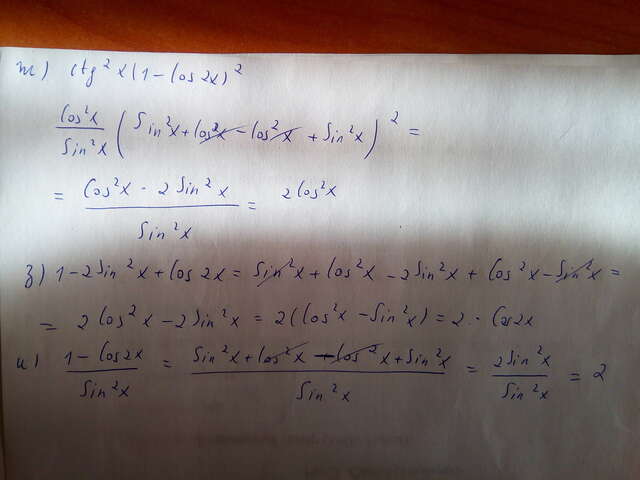 ж) ctg² x (1 - Cos 2x)²
Cos²x / Sin²x (Sin²x + Cos²x - Cos²x + Sin²x)² =
= Cos²x · 2 Sin²x / Sin²x = 2 Cos²x
з) 1 - 2 Sin²x + Cos 2x = Sin²x + Cos²x - 2 Sin²x + Cos²x - Sin²x =
= 2 Cos²x - 2 Sin²x = 2 (Cos²x - Sin²x) = 2 · Cos2x
и) 1 - Cos2x / Sin²x = Sin²x + Cos²x - Cos²x + Sin²x / Sin²x = 2 Sin²x / Sin²x = 2